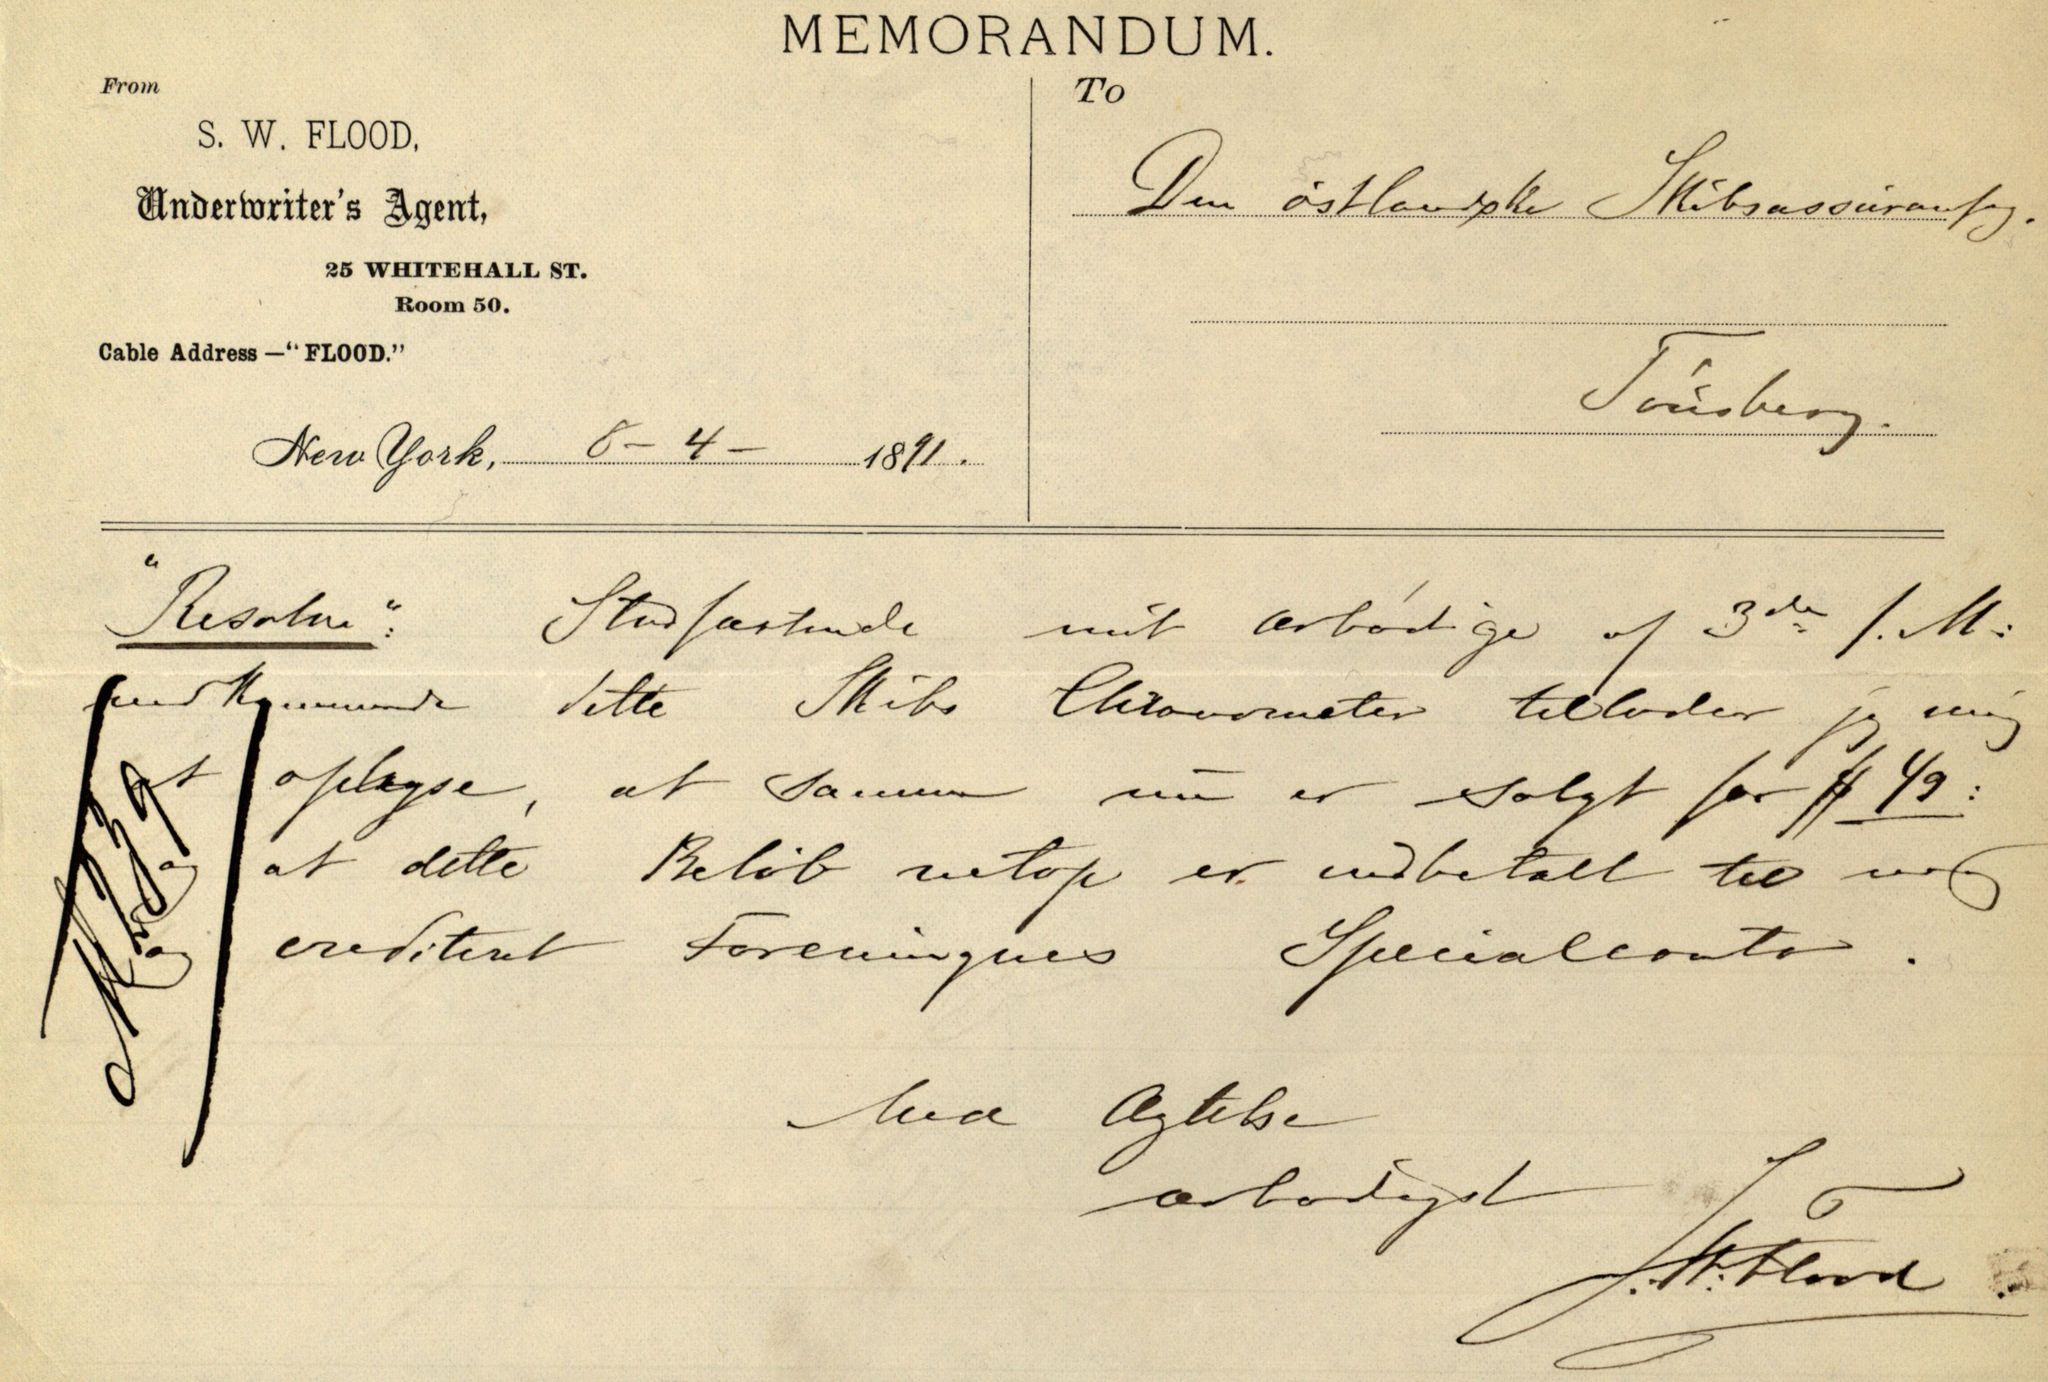 MEMORANDUM.
From
S. W. FLOOD,
Underwriter's Agent,
25 WHITEHALL ST.
Room 50.
Cable Address —"FLOOD."
New York, 8-4- 1891.
To
Den östlandske Skibsassuranfog.
Tönsberg.
"Resolve": Stadfæstende mit ærbödige af 3die f. M:
vedkommende dette Skibs Chronometer tillader jeg mig
at oplyse, at samme nu er solgt for $ 49:
og at dette Belöb netop er indbetalt til mig
og crediteret Foreningens Specialconto.
Med Agtelse
ærbödigst
S. W. Flood